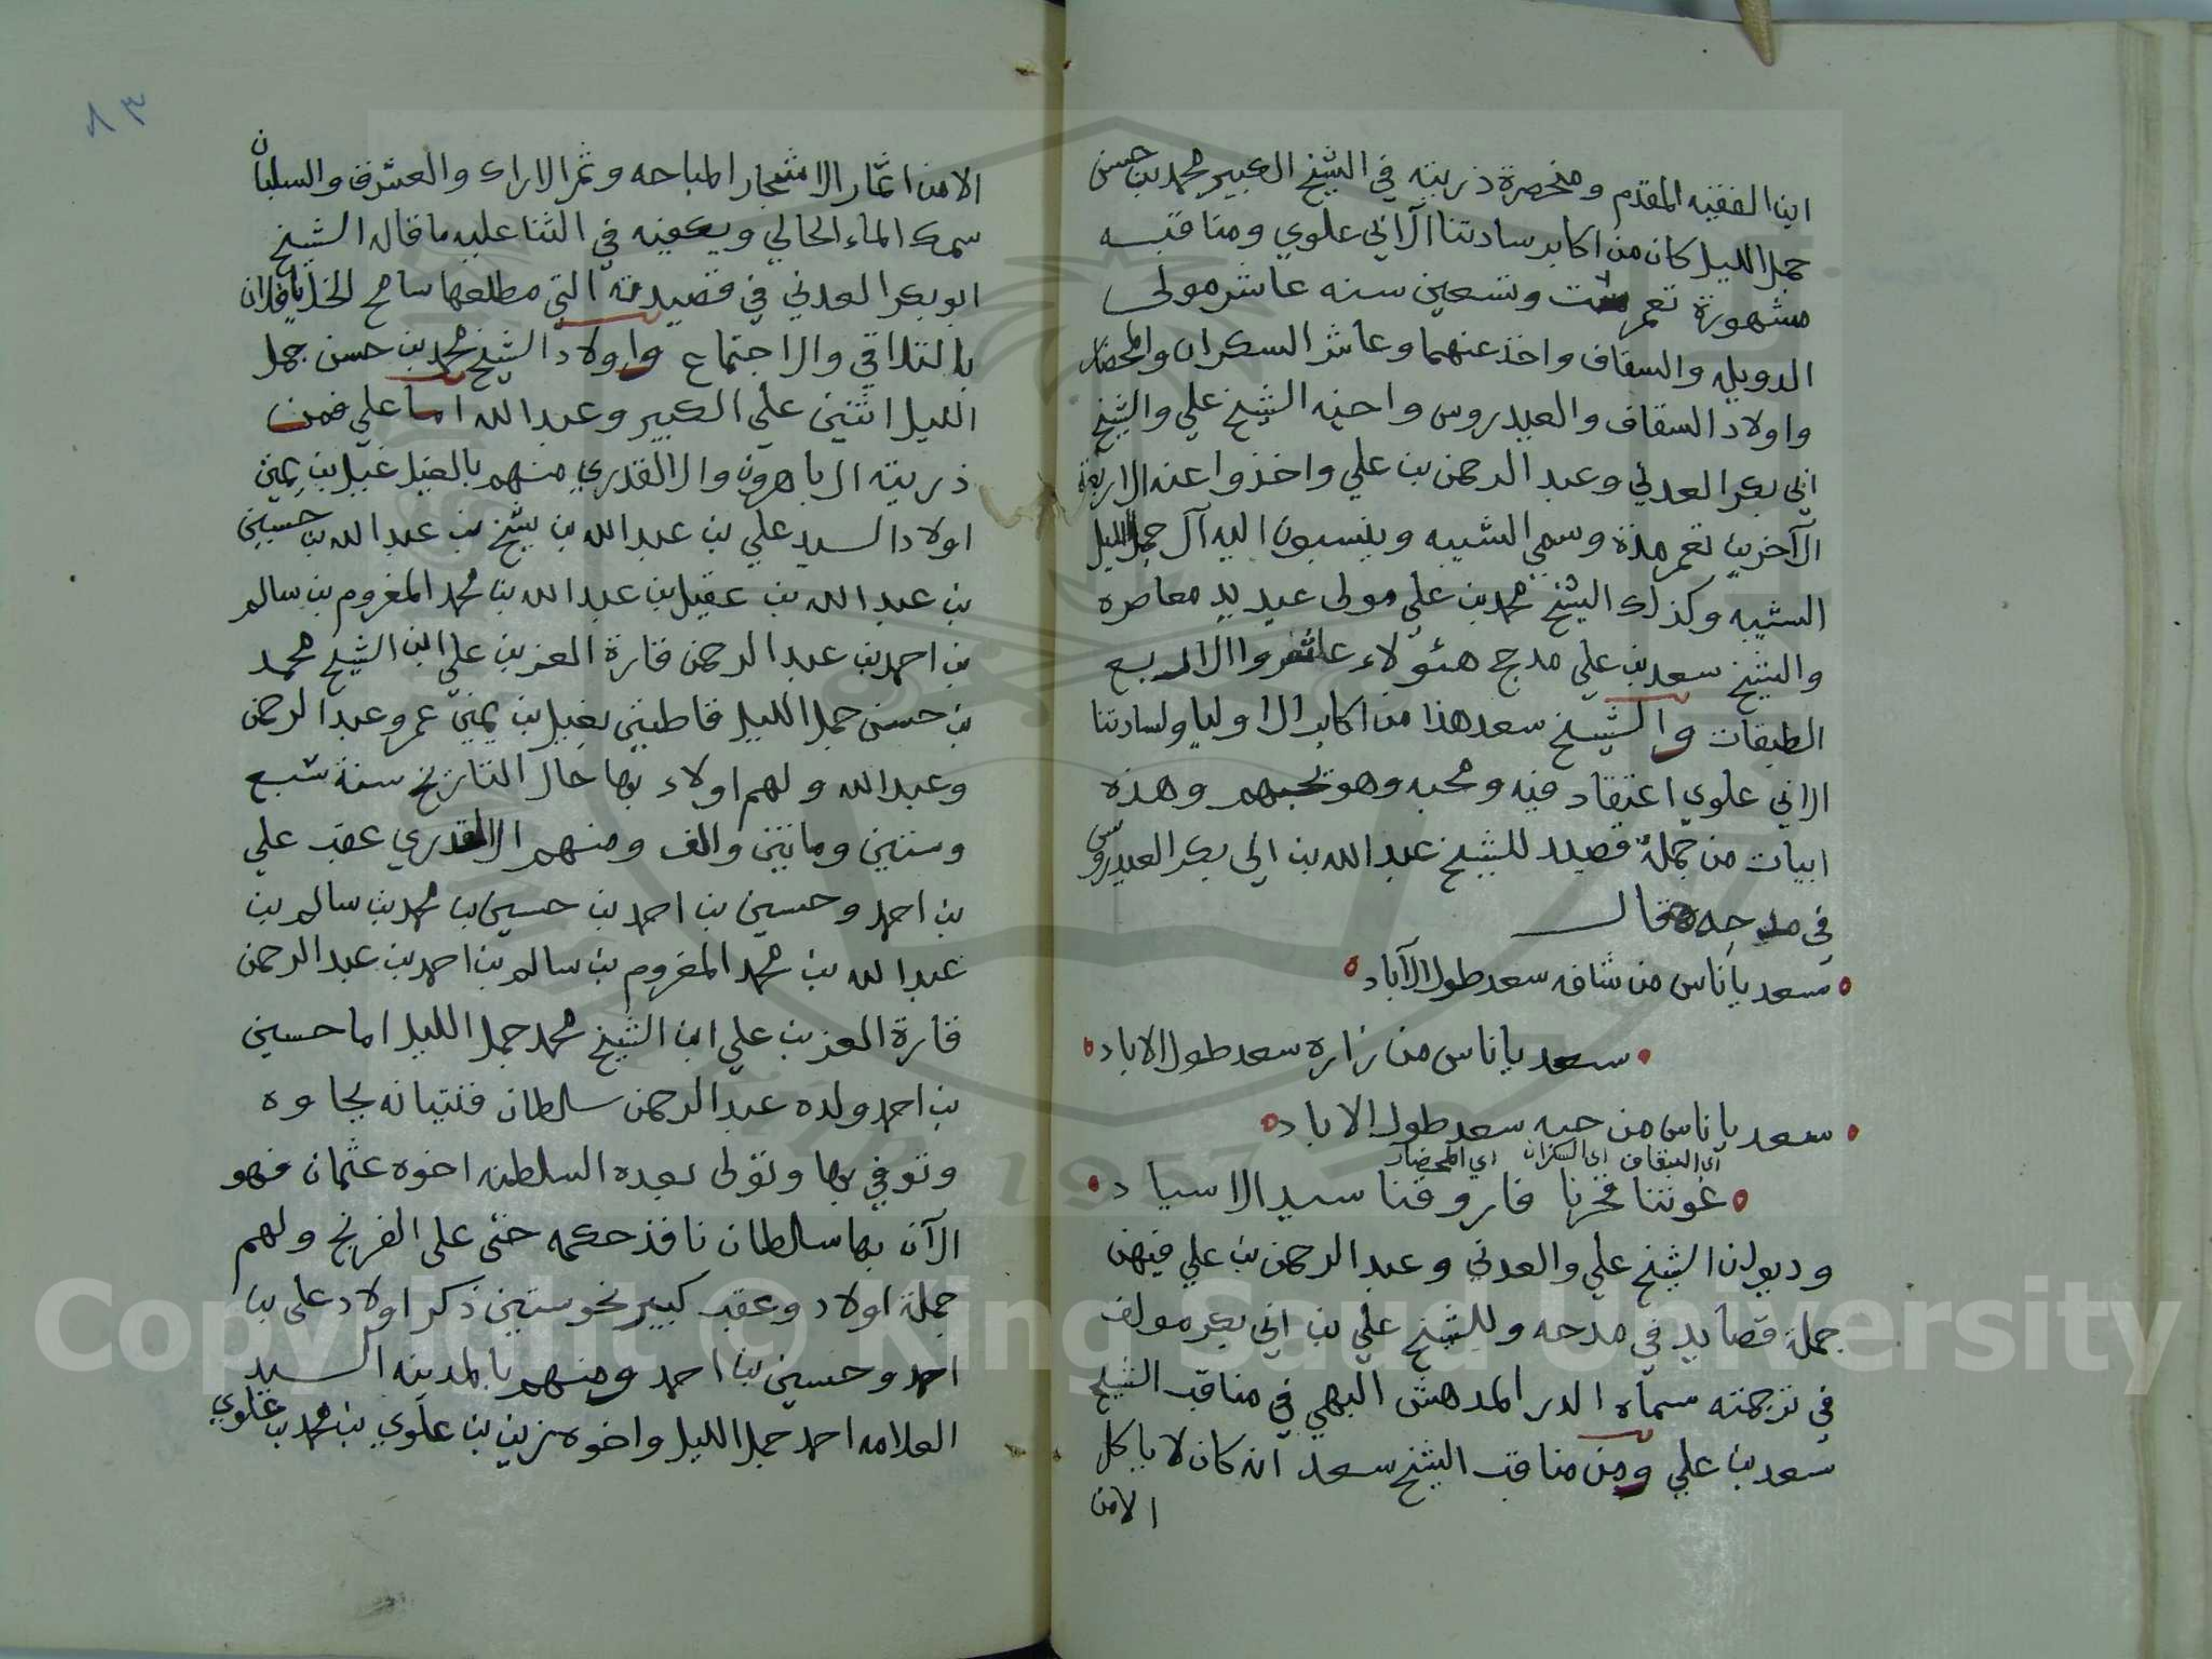 ابن الفقيه المقدم ومنحصرة ذريته في الشيخ الكبير محمد بن حسن
جمل الليل كان من اكابر سادتنا آل ابي علوي ومناقبه
مشهورة تعمر ست وتسعين سنه عاشر مولى
الدويله والسقاف واخذ عنهما وعاشر السكران والمحضار
واولاد السقاف والعيدروس واخيه الشيخ علي والشيخ
ابي بكر العدني وعبد الرحمن بن علي واخذوا عنه الاربعة
الآخرين تعمر مدة وسمي الشيبه وينسبون اليه آل جمل الليل
الشيبه وكذلك الشيخ محمد بن علي مولى عيديد معاصره
والشيخ سعد بن علي مدحج هئولاء عاشروا الاربع
الطبقات والشيخ سعد هذا من اكابر الاوليا ولسادتنا
ال ابي علوي اعتقاد فيه ومحبه وهو يحبهم وهذه
ابيات من جملة قصيد للشيخ عبد الله بن ابي بكر العيدروس
في مدحه قال
سعد يا ناس من شافه سعد طول الآباد
سعد يا ناس من زاره سعد طول الاباد
سعد يا ناس من حبه سعد طول الاباد
اي السقاف اي السكران اي المحضار
غوثنا فخرنا فاروقنا سيد الاسياد
وديوان الشيخ علي والعدني وعبد الرحمن بن علي فيهن
جملة قصايد في مدحه وللشيخ علي بن ابي بكر مولف
في ترجمته سماه الدر المدهش البهي في مناقب الشيخ
سعد بن علي ومن مناقب الشيخ سعد انه كان لا ياكل
الامن
٨٣
الامن اثمار الاشجار المباحه وثمر الاراك والعشرق والسلبان
سمك الماء الحالي ويكفيه في الثنا عليه ما قاله الشيخ
ابو بكر العدني في قصيدته التي مطلعها سامح الخل يا فلان
بالتلاقي والاجتماع واولاد الشيخ محمد بن حسن جمل
الليل اثنين علي الكبير وعبد الله اما علي فمن
ذريته ال باهرون وال القدري منهم بالغيل غيل بن يمين
اولاد السيد علي بن عبد الله بن شيخ بن عبد الله بن حسين
بن عبد الله بن عقيل بن عبد الله بن محمد المغروم بن سالم
بن احمد بن عبد الرحمن قارة العز بن علي ابن الشيخ محمد
بن حسن جمل الليل قاطنين بغيل بن يمين عمر وعبد الرحمن
وعبد الله ولهم اولاد بها حال التاريخ سنة سبع
وستين ومايتين والف ومنهم ال القدري عقب علي
بن احمد وحسين بن احمد بن حسين بن محمد بن سالم بن
عبد الله بن محمد المغروم بن سالم بن احمد بن عبد الرحمن
قارة العز بن علي ابن الشيخ محمد جمل الليل اما حسين
بن احمد ولده عبد الرحمن سلطان فنتيانه بجاوه
وتوفي بها وتولى بعده السلطنه اخوه عثمان فهو
الآن بها سلطان نافذ حكمه حتى على الفرنج ولهم
جملة اولاد وعقب كبير نحو ستين ذكر اولاد على بن
احمد وحسين بن احمد ومنهم بالمدينه السيد
العلامه احمد جمل الليل واخوه زين بن علوي بن محمد بن علوي
Copyright © King Saud University
1957